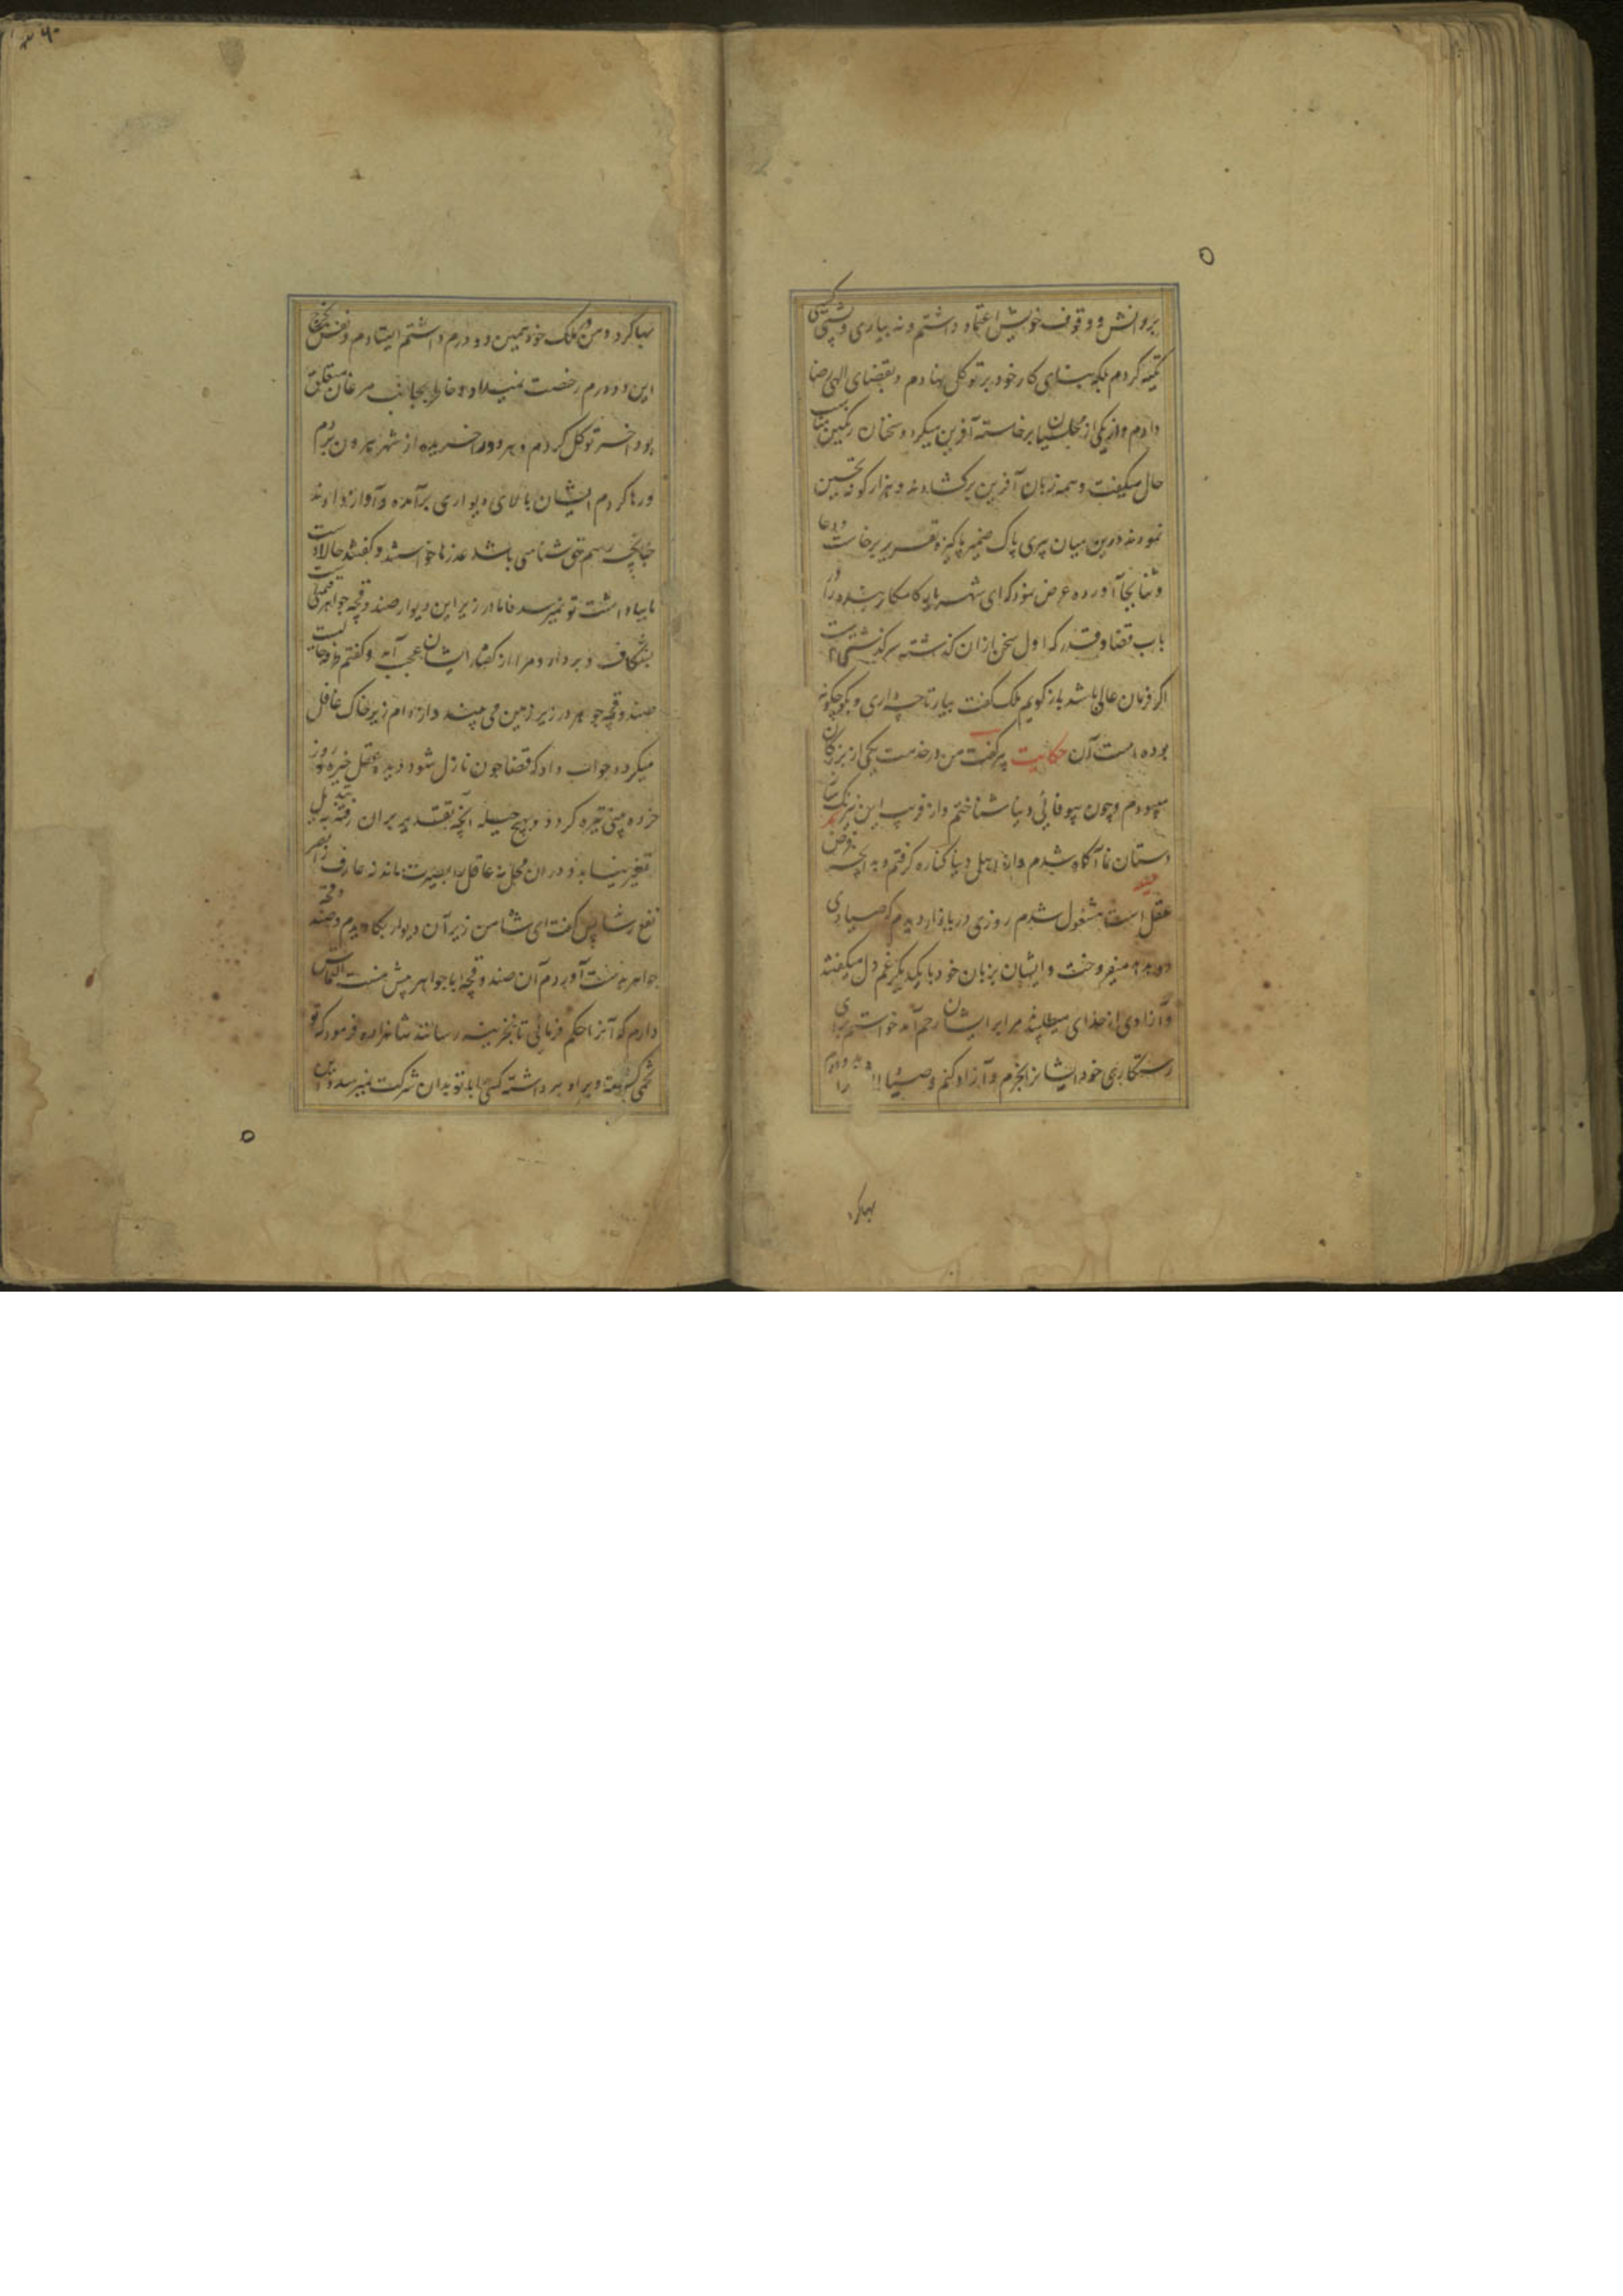 بر دانش و وقوف خویش اعتماد داشتم و نه بیاری و پشتی کسی
تکیه کردم بلکه بنای کار خود بر توکل نهادم و بقضای الهی رضا
دادم و از یکی از مجلسیان برخاسته آفرین میکرد و سخنان رنگین مناسب
حال میگفت و همه زبان آفرین برکشادند و هزار گونه تحسین
نمودند درین میان پیری پاک ضمیر پاکیزه تقریر برخاست و دعا
و ثنا بجا آورده عرض نمود که ای شهریار کامکار بنده را در
باب قضا و قدر که اول سخن ازان گذشته سرگذشتی است
اگر فرمان عالی باشد بازگویم ملک گفت بیار تا چه داری و بگو چگونه
بوده است آن حکایت پیر گفت من در خدمت یکی از بزرگان
میبودم و چون بیوفائی دنیا شناختم و از فریب این نیرنگ ساز
دستان نما آگاه شدم و از اهل دنیا کناره گرفتم و به آنچه فرض
عقل است مشغول شدم روزی در بازار دیدم که صیادی
دو هدهد میفروخت و ایشان بزبان خود با یکدیگر غم دل میگفتند
و آزادی از خدای میطلبیدند مرا بر ایشان رحم آمد خواستم برای
رستگاری خود ایشانرا بخرم و آزاد کنم و صیاد دو درم
بها کرد
بها کرد و من در ملک خود همین دو درم داشتم ایستادم و نفس بخرج
این دو درم رخصت نمیداد و خاطر بجانب مرغان متعلق
بود آخر توکل کردم و هر دو را خریده از شهر بیرون بردم
و رها کردم ایشان بالای دیواری برآمده و آواز دادند
چنانچه رسم حق شناسی باشد عذرها خواستند و گفتند حالا دست
ما بپاداشت تو نمیرسد فاما در زیر این دیوار صندوقچه جواهر قیمتی است
بشکاف و بردار و مرا از گفتار ایشان عجب آمد و گفتم طرفه حالیست
صندوقچه جواهر در زیر زمین می بینند و از دام زیر خاک غافل
میگردد جواب داد که قضا چون نازل شود دیده عقل خیره و روز
خرده بینی تیره گردد و بهیچ حیله آنچه بتقدیر بران رفته تبدیل
تغیر نیابد و دران محل نه عاقل را بصیرت ماند نه عارف را بصر
نفع رساند پس گفت ای شاه من زیر آن دیوار بکاویدم و صندوقچه
جواهر بدست آوردم آن صندوقچه با جواهر پیش منست التماس
دارم که آنرا حکم فرمائی تا بخزینه رسانند شاهزاده فرمود که تو
تخمی کشته و بر او برداشته کسی را با تو بدان شرکت نمیرسد و این